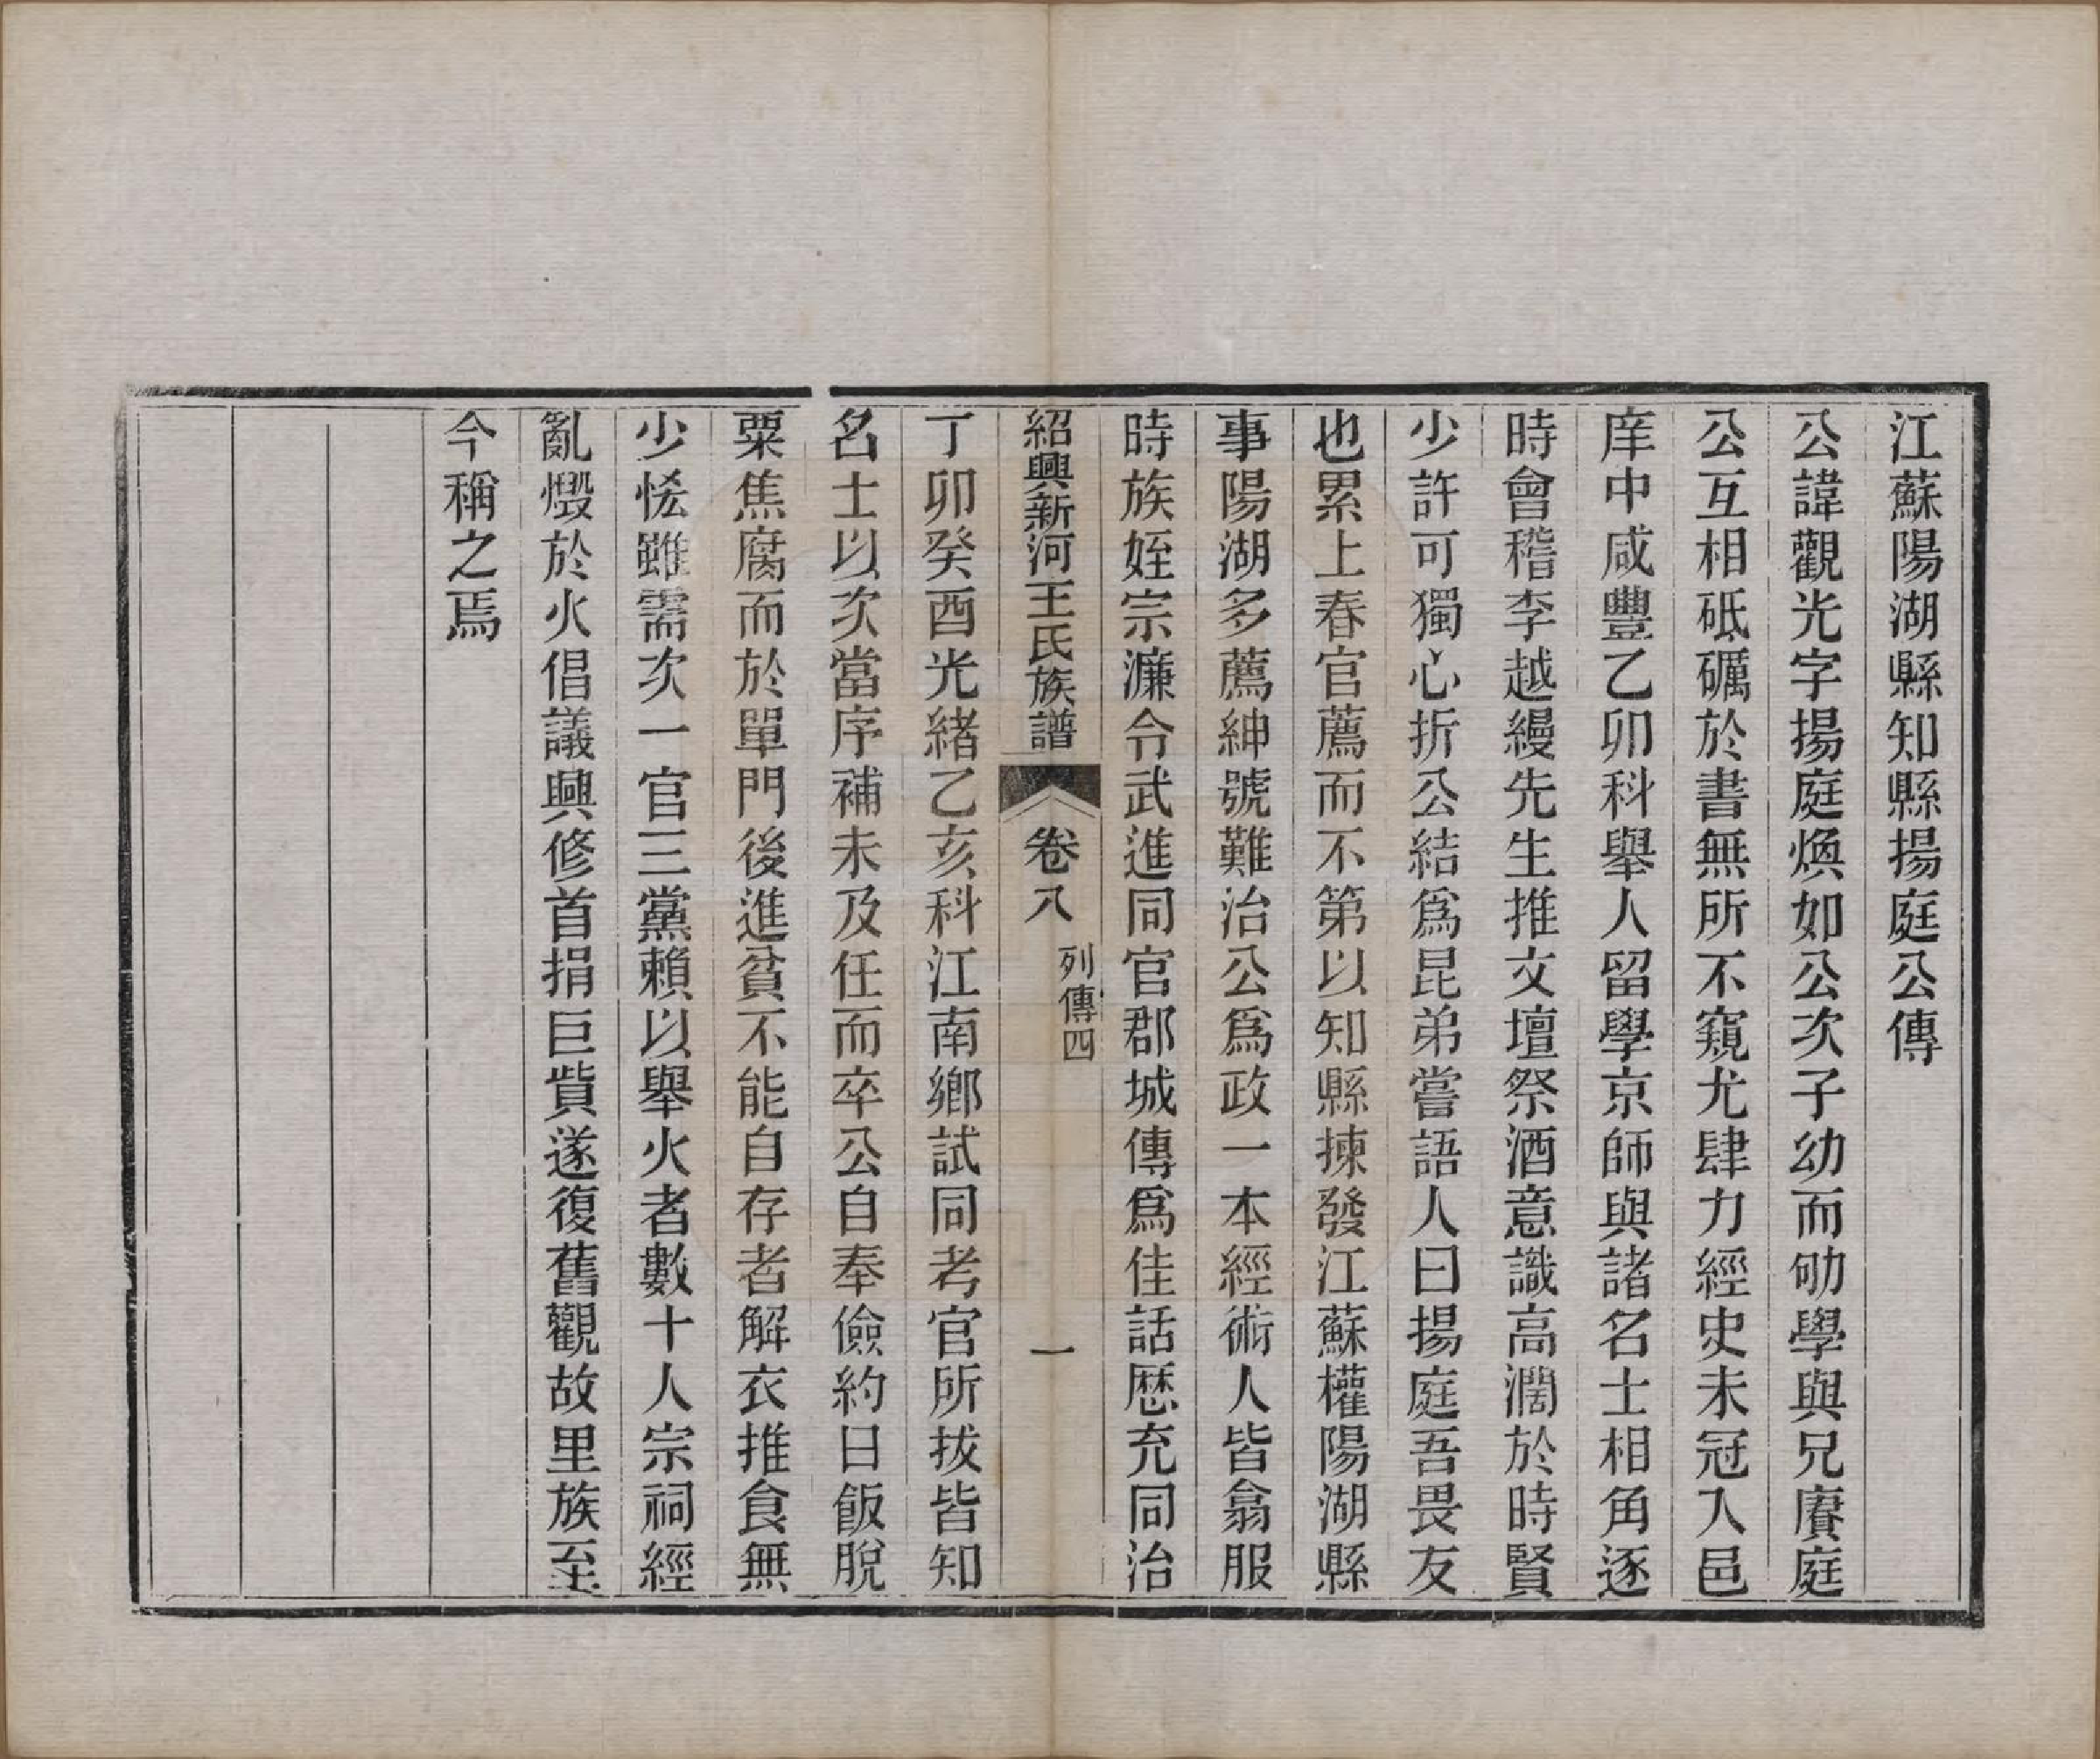 江蘇陽湖縣知縣揚庭公傳
公諱觀光字揚庭煥如公次子幼而劬學與兄賡庭
公互相砥礪於書無所不窺尤肆力經史未冠入邑
庠中咸豐乙卯科舉人留學京師與諸名士相角逐
時會稽李越縵先生推文壇祭酒意識高濶於時賢
少許可獨心折公結爲昆弟嘗語人曰揚庭吾畏友
也累上春官薦而不第以知縣揀發江蘇權陽湖縣
事陽湖多薦紳號難治公爲政一本經術人皆翕服
時族姪宗濂令武進同官郡城傳爲佳話歷充同治
紹興新河王氏族譜 卷八 列傳四 一
丁卯癸酉光緒乙亥科江南鄉試同考官所拔皆知
名士以次當序補未及任而卒公自奉儉約日飯脫
粟焦腐而於單門後進貧不能自存者解衣推食無
少恡雖需次一官三黨賴以舉火者數十人宗祠經
亂燬於火倡議興修首捐巨貲遂復舊觀故里族至
今稱之焉